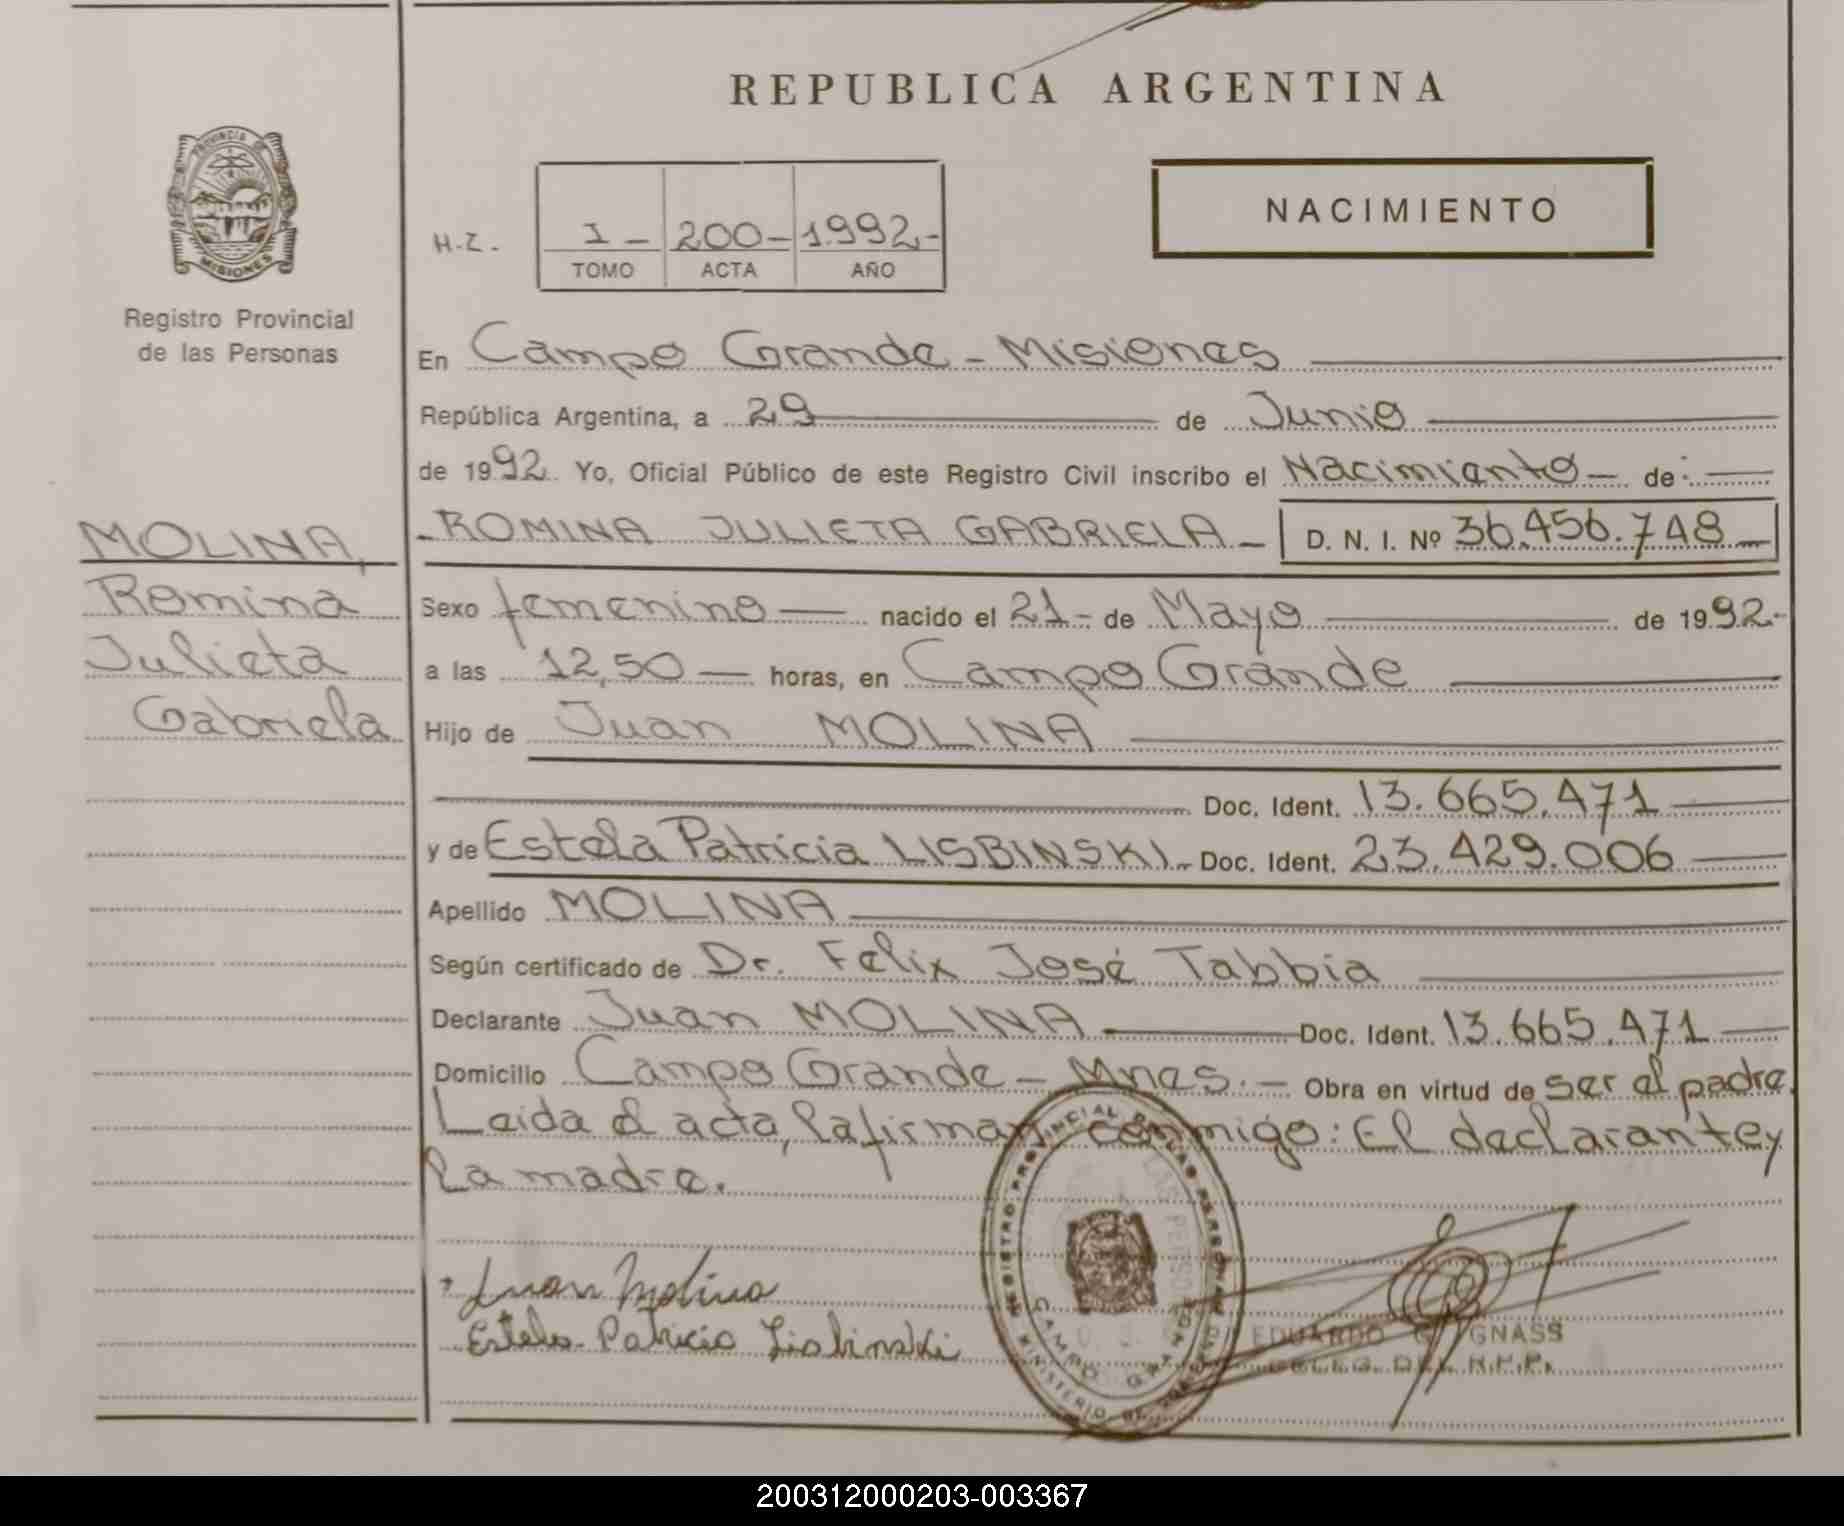 REPUBLICA ARGENTINA
PROVINCIA DE
MISIONES
Registro Provincial
de las Personas
H.Z.-
I- 200- 1.992.-
TOMO ACTA AÑO
NACIMIENTO
En Campo Grande - Misiones
República Argentina, a 29 de Junio
de 1992. Yo, Oficial Público de este Registro Civil inscribo el Nacimiento - de:
MOLINA,
Romina
Julieta
Gabriela
- ROMINA JULIETA GABRIELA - D. N. I. Nº 36.456.748
Sexo femenino nacido el 21- de Mayo de 1992.-
a las 12,50 horas, en Campo Grande
Hijo de Juan MOLINA
Doc. Ident. 13.665.471
y de Estela Patricia LISBINSKI.- Doc. Ident. 23.429.006
Apellido MOLINA
Según certificado de Dr. Felix José Tabbia
Declarante Juan MOLINA Doc. Ident. 13.665.471
Domicilio Campo Grande - Mnes.- Obra en virtud de ser el padre.
Leida el acta, la firman conmigo: El declarante y
la madre.
Juan Molina
Estela Patricia Lisbinski
REGISTRO PROVINCIAL DE LAS PERSONAS
MINISTERIO DE
CAMPO GRANDE
EDUARDO GNASS
DELEG. DEL R.P.P.
200312000203-003367